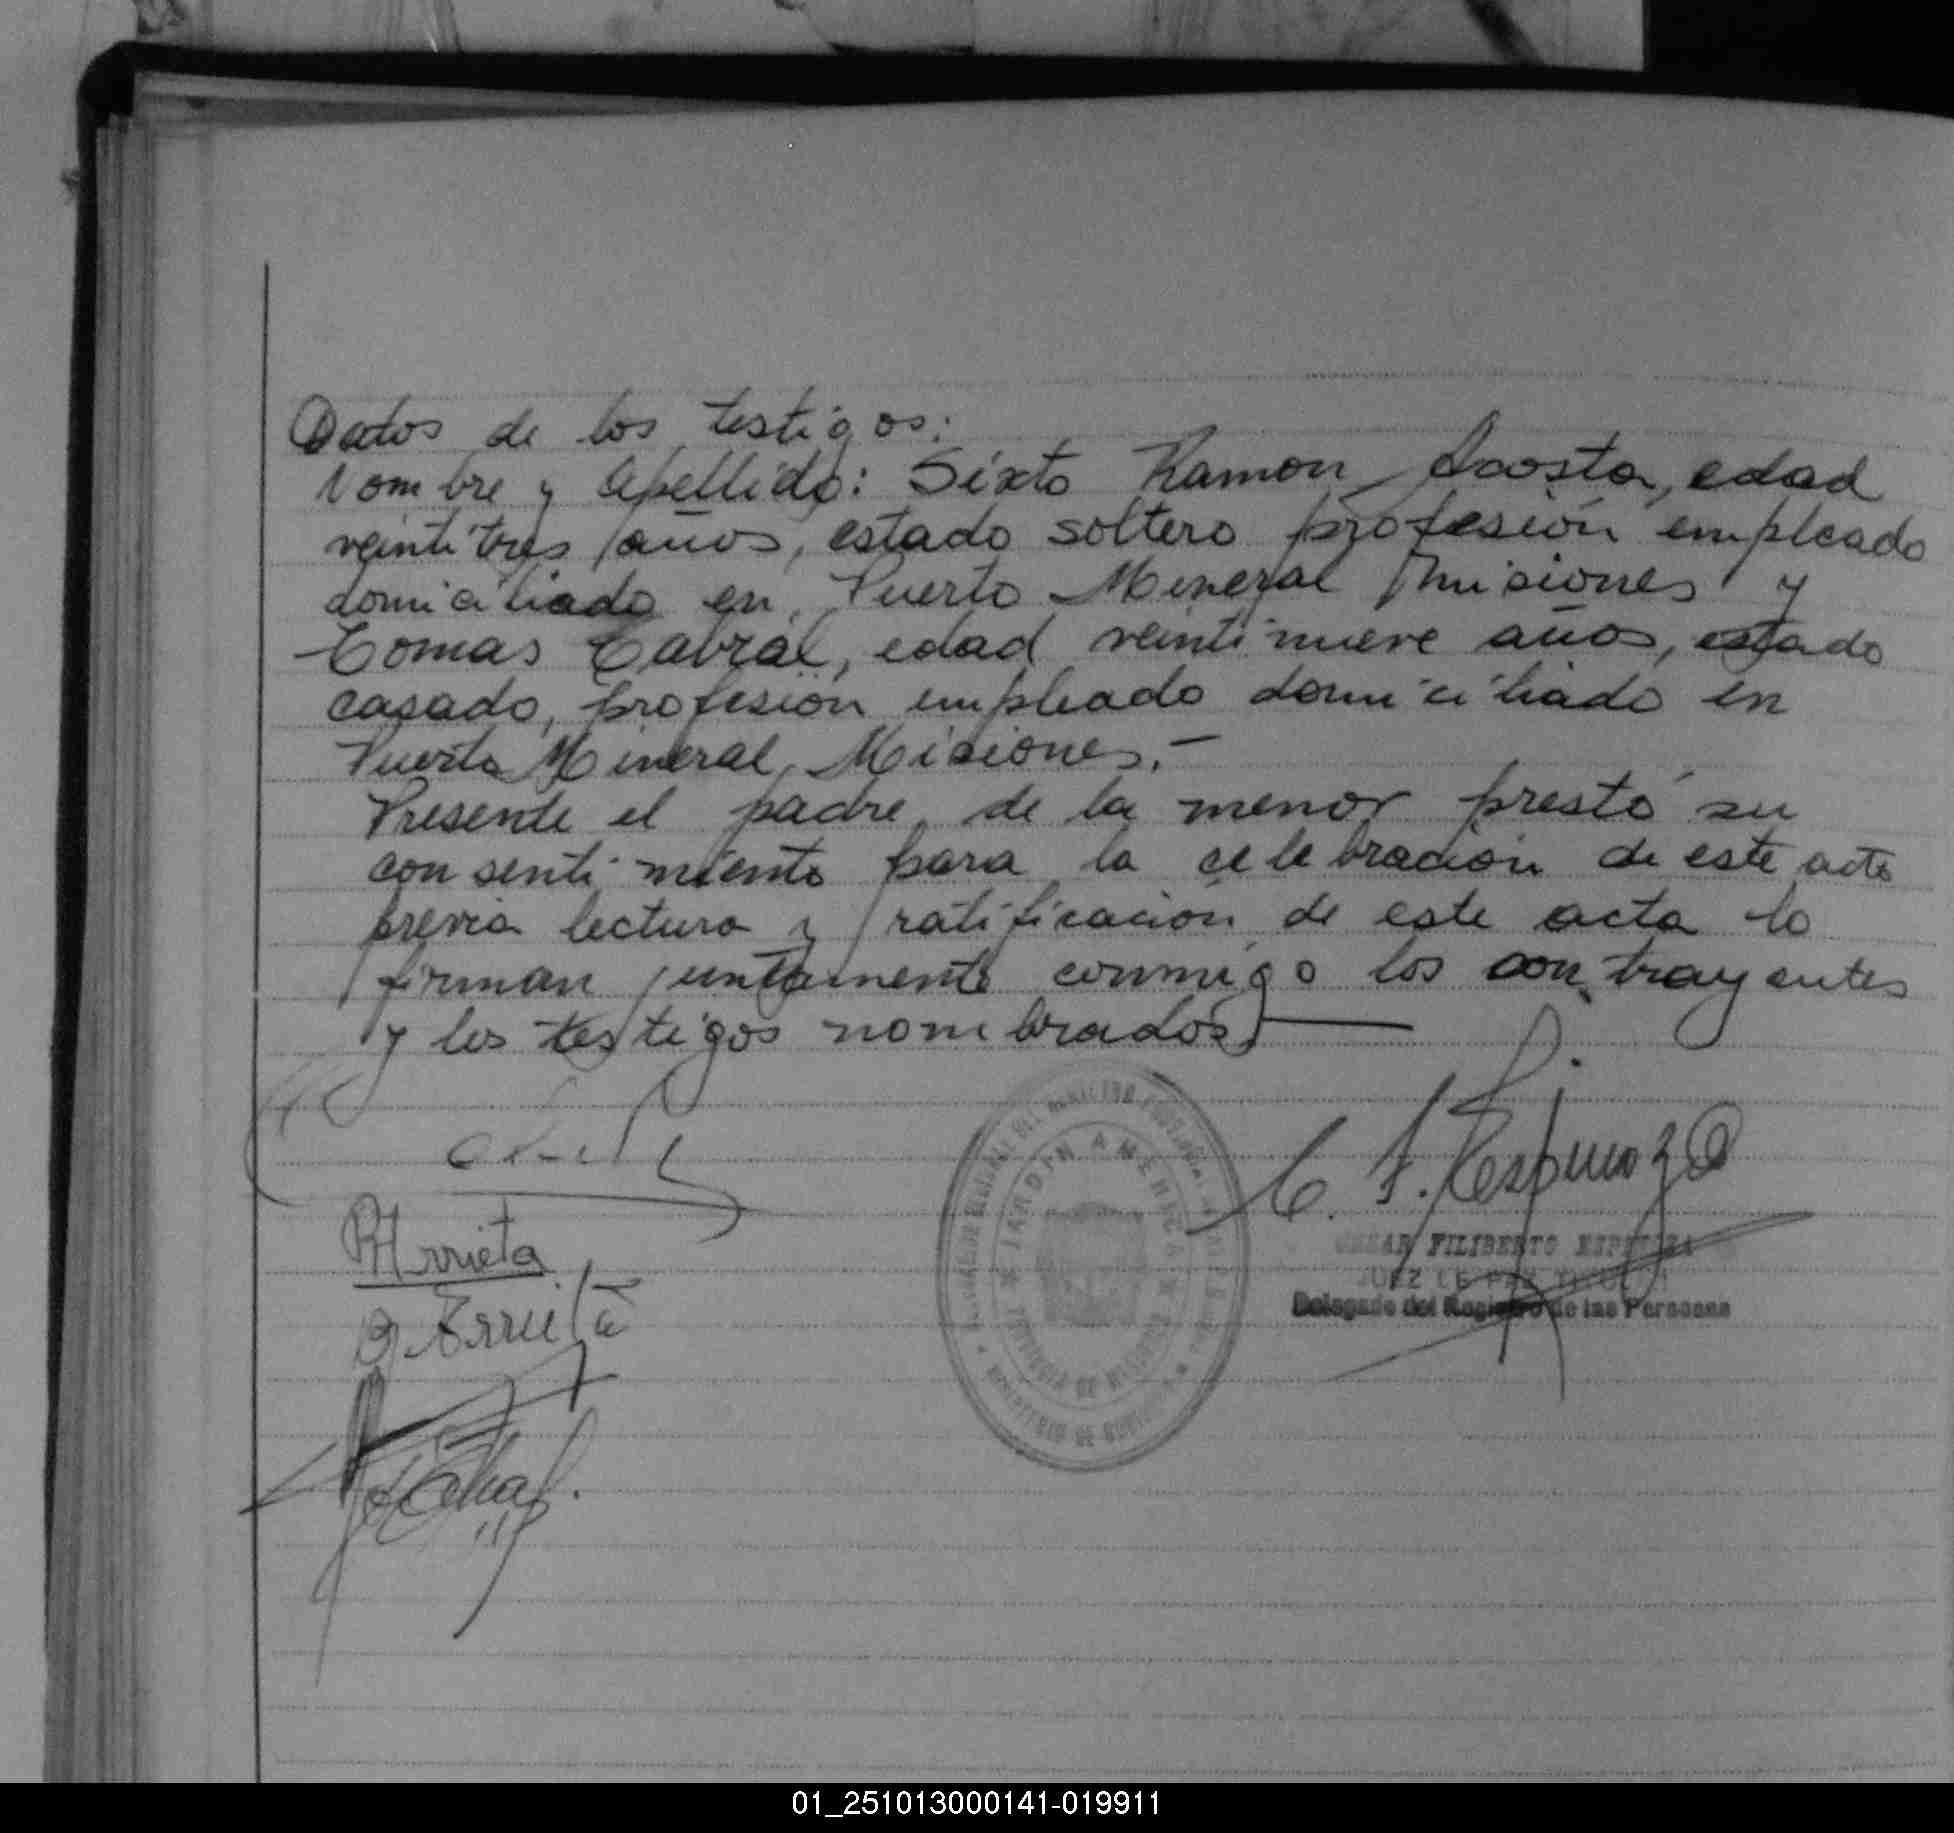 Datos de los testigos:
Nombre y Apellido: Sixto Ramon Acosta, edad
veintitres años, estado soltero profesión empleado
domiciliado en Puerto Mineral Misiones y
Tomas Cabral, edad veintinueve años, estado
casado, profesión empleado domiciliado en
Puerto Mineral, Misiones.-
Presente el padre de la menor prestó su
consentimiento para la celebración de este acto
previa lectura y ratificación de este acta lo
firman juntamente conmigo los contrayentes
y los testigos nombrados.
C. F. Espinoza
Arrieta
JARDIN AMERICA
PROVINCIA DE MISIONES
MINISTERIO DE GOBIERNO
FILIBERTO ESPINOZA
JUEZ DE PAZ TITULAR
Delegado del Registro de las Personas
01_251013000141-019911